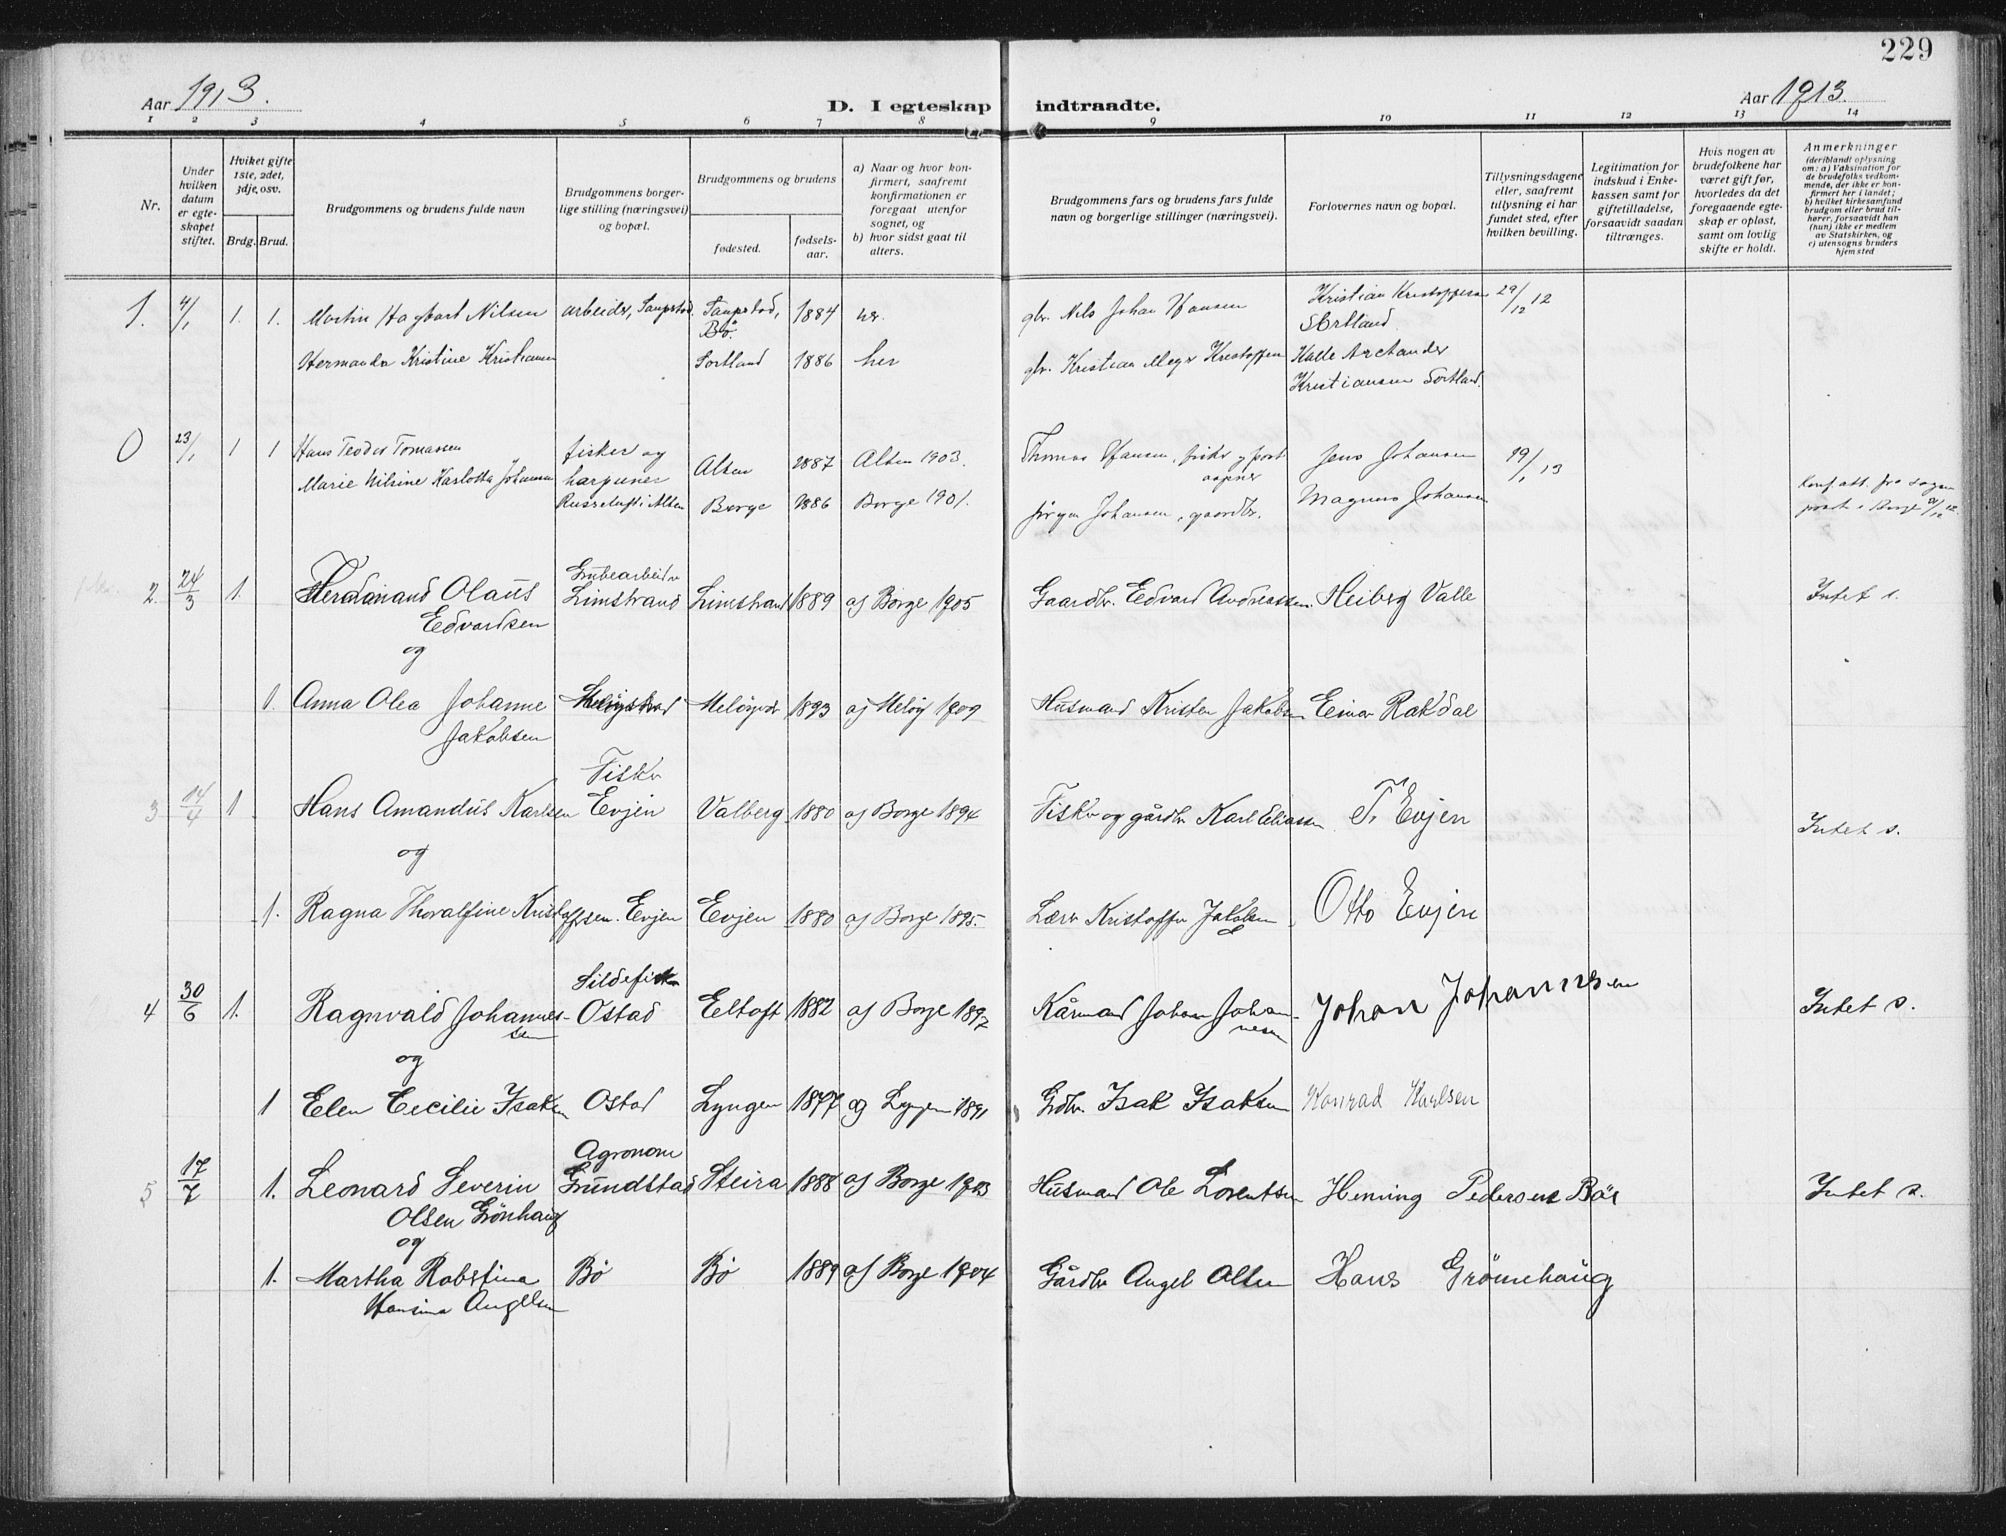 229
Aar 1913.
D. I egteskap indtraadte.
Aar 1913.
1 2 3 4 5 6 7 8 9 10 11 12 13 14
Nr.
Under hvilken datum er egteskapet stiftet.
Hviket gifte 1ste, 2det, 3dje, osv.
Brdg. Brud.
Brudgommens og brudens fulde navn
Brudgommens borgerlige stilling (næringsvei) og bopæl.
Brudgommens og brudens
fødested.
fødselsaar.
a) Naar og hvor konfirmert, saafremt konfirmationen er foregaat utenfor sognet, og
b) hvor sidst gaat til alters.
Brudgommens fars og brudens fars fulde navn og borgerlige stillinger (næringsvei).
Forlovernes navn og bopæl.
Tillysningsdagene eller, saafremt tillysning ei har fundet sted, efter hvilken bevilling.
Legitimation for indskud i Enkekassen samt for giftetilladelse, forsaavidt saadan tiltrænges.
Hvis nogen av brudefolkene har været gift før, hvorledes da det foregaaende egteskap er opløst, samt om lovlig skifte er holdt.
Anmerkninger
(deriblandt oplysning om: a) Vaksination for de brudefolks vedkommende, der ikke er konfirmert her i landet;
b) hvilket kirkesamfund brudgom eller brud tilhører, forsaavidt han (hun) ikke er medlem av Statskirken, og
c) utensogns bruders hjemsted
1. 4/1 1. 1. Martin Hagbart Nilsen arbeider, Taapstad. Taapstad, Bø. 1884 her. gbr. Nils Johan Hansen Kristian Kristoffersen Sortland. 29/12 12
Hermanda Kristine Kristiansen Sortland 1886 her gbr. Kristian Meyer Kristoffersen Halle Archander Kristiansen Sortland.
0 23/1 1 1 Hans Teodor Tomassen fisker og harpuner Alten 1887 Alten 1903. Thomas Hansen, fisker og postaapner Jens Johansen 19/1 13
Marie Nilsine Karlotta Johansen Russeluft i Alten Borge 1886 Borge 1901. Jørgen Johansen, gaardbr. Magnus Johansen Konf. att. fra sogneprest i Borge
2. 24/3 1. Ferdinand Olaus Edvardsen Grubearbeider Limstrand Limstrand 1889 af Borge 1905 Gaardbr. Edvard Andreassen. Heiberg Valle Intet s.
og
1. Anna Olea Johanne Jakobsen Meløyvær 1893 af Meløy 1909 Husmand Kristen Jakobsen Einar Rakdal
3 14/4 1 Hans Amandus Karlsen Fisker Evjen Valberg 1880 af Borge 1894 Fisker og gårdbr Karl Eliassen. T. Evjen Intet s.
og
1. Ragna Thoralfine Kristoffersen. Evjen Evjen 1880 af Borge 1895. Lærer Kristoffer Jakobsen Otto Evjen
4 30/6 1. Ragnvald Johannessen Sildefisker Ostad Eltoft 1882 af Borge 1897 Kårmand Johan Johannesen Johan Johannesen Intet s.
og
1 Elen Cecilie Isaksen Ostad Lyngen 1877 af Lyngen 1891 Grdbr. Isak Isaksen Konrad Karlsen
5 17/7 1. Leonard Severin Olsen Grönhaug Agronom Grundstad Steira 1888 af Borge 1903 Husmand Ole Lorentsen Heming Pedersen Bøe Intet s.
og
1. Martha Robertina Hansina Angelsen Bö Bö 1889 af Borge 1904 Gårdbr Angel Olsen Hans Grönnehaug